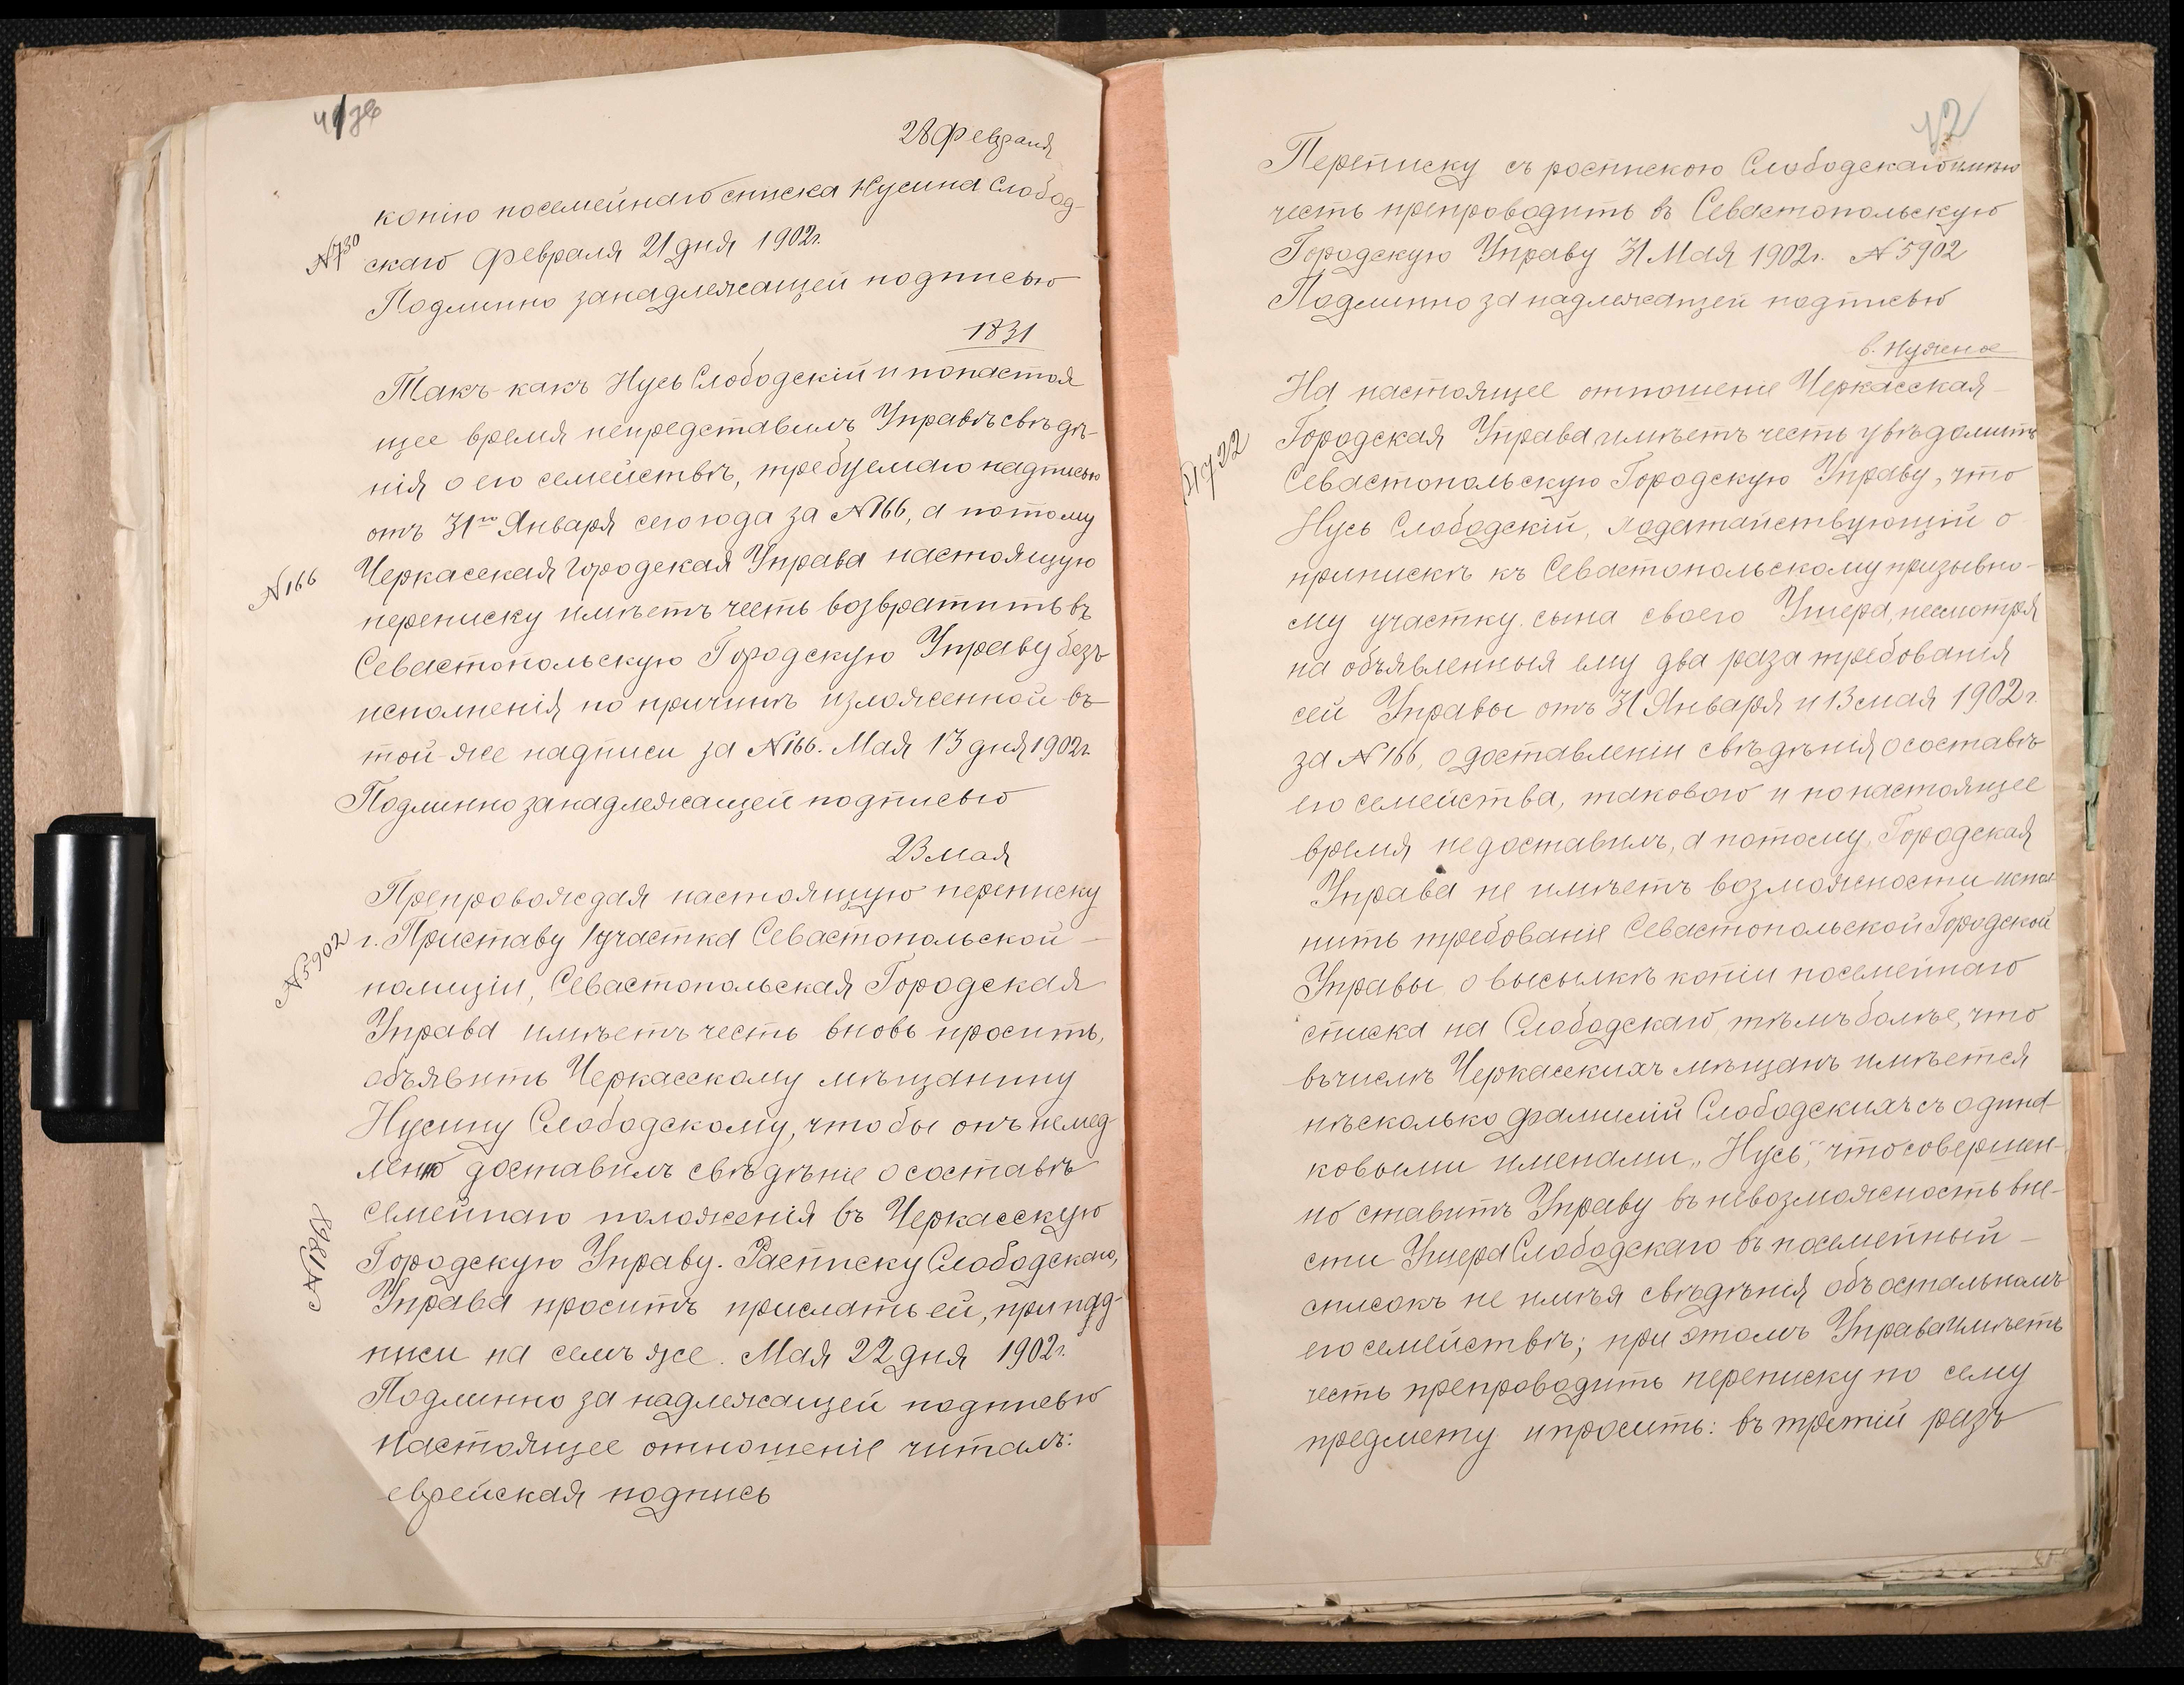 28 Февраля
копію посемейнаго списка Нусина Слобод-
№730 скаго Февраля 21 дня 1902г.
Подлинно занадлежащей подписью
1831
Такъ-какъ Нусь Слободскій и понастоя
щее время непредставилъ Управѣ свѣдѣ-
нія о его семействѣ, требуемаго надписью
отъ 31го Января сего года за №166, а потому
№166 Черкасская городская Управа настоящую
переписку имѣетъ честь возвратить въ
Севастопольскую Городскую Управу безъ
исполненія по причинѣ изложенной въ
той-же надписи за №166. Мая 13 дня 1902г.
Подлинно занадлежащей подписью
23 мая
Препровождая настоящую переписку
№5902 г. Приставу 1 участка Севастопольской
полиціи, Севастопольская Городская
Управа имѣетъ честь вновь просить,
объявить Черкасскому мѣщанину
Нусину Слободскому, чтобы онъ немед
ленно доставилъ свѣдѣніе о составѣ
семейнаго положенія въ Черкасскую
№1868 Городскую Управу. Расписку Слободскаго,
Управа проситъ прислать ей, при над-
писи на семъ же. Мая 22 дня 1902г.
Подлинно за надлежащей подписью
Настоящее отношеніе читалъ:
еврейская подпись
42
Переписку съ роспискою Слободскаго имѣю
честь препроводить въ Севастопольскую
Городскую Управу 31 Мая 1902г. №5902
Подлинно за надлежащей подписью
в. Нужное
На настоящее отношеніе Черкасская
Городская Управа имѣетъ честь увѣдомить
Севастопольскую Городскую Управу, что
Нусь Слободскій, ходатайствующій о
припискѣ къ Севастопольскому призывно-
му участку сына своего Ушера, несмотря
на объявленныя ему два раза требованія
сей Управы отъ 31 Января и 13 мая 1902г.
за №166, о доставленіи свѣдѣнія о составѣ
его семейства, таковаго и по настоящее
время недоставилъ, а потому Городская
Управа не имѣетъ возможности испол
нить требованіе Севастопольской Городской
Управы о высылкѣ копіи посемейнаго
списка на Слободскаго, тѣмъ болѣе, что
въ числѣ Черкасскихъ мѣщанъ имѣется
нѣсколько фамилій Слободскихъ съ одина-
ковыми именами „Нусь", что совершен-
но ставитъ Управу въ невозможность вне-
сти Ушера Слободскаго въ посемейный
списокъ не имѣя свѣдѣнія объ остальномъ
его семействѣ; при этомъ Управа имѣетъ
честь препроводить переписку по сему
предмету и просить: въ третій разъ